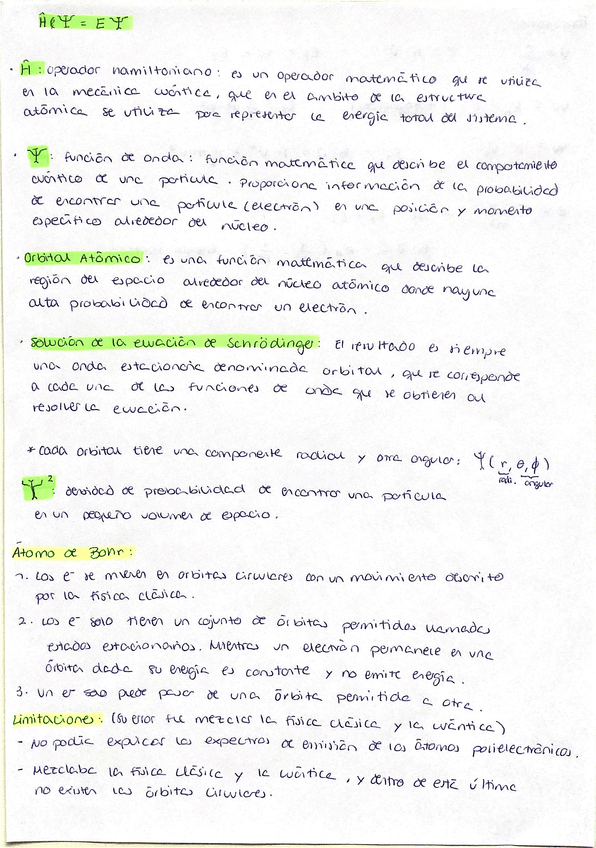 Ĥ Ψ = E Ψ
· Ĥ: operador hamiltoniano: es un operador matemático que se utiliza
en la mecánica cuántica, que en el ámbito de la estructura
atómica se utiliza para representar la energía total del sistema.
· Ψ: función de onda: función matemática que describe el comportamiento
cuántico de una partícula. Proporciona información de la probabilidad
de encontrar una partícula (electrón) en una posición y momento
específico alrededor del núcleo.
· Orbital Atómico: es una función matemática que describe la
región del espacio alrededor del núcleo atómico donde hay una
alta probabilidad de encontrar un electrón.
· Solución de la ecuación de Schrödinger: El resultado es siempre
una onda estacionaria denominada orbital, que se corresponde
a cada una de las funciones de onda que se obtienen al
resolver la ecuación.
* Cada orbital tiene una componente radial y otra angular: Ψ(r, θ, ϕ)
radi. angular
Ψ²: densidad de probabilidad de encontrar una partícula
en un pequeño volumen de espacio.
Átomo de Bohr:
1. Los e⁻ se mueven en órbitas circulares con un movimiento descrito
por la física clásica.
2. Los e⁻ solo tienen un conjunto de órbitas permitidas llamadas
estados estacionarios. Mientras un electrón permanece en una
órbita dada su energía es constante y no emite energía.
3. Un e⁻ solo puede pasar de una órbita permitida a otra.
Limitaciones: (su error fue mezclar la física clásica y la cuántica)
- No podía explicar los espectros de emisión de los átomos polielectrónicos.
- Mezclaba la física clásica y la cuántica, y dentro de esta última
no existen las órbitas circulares.